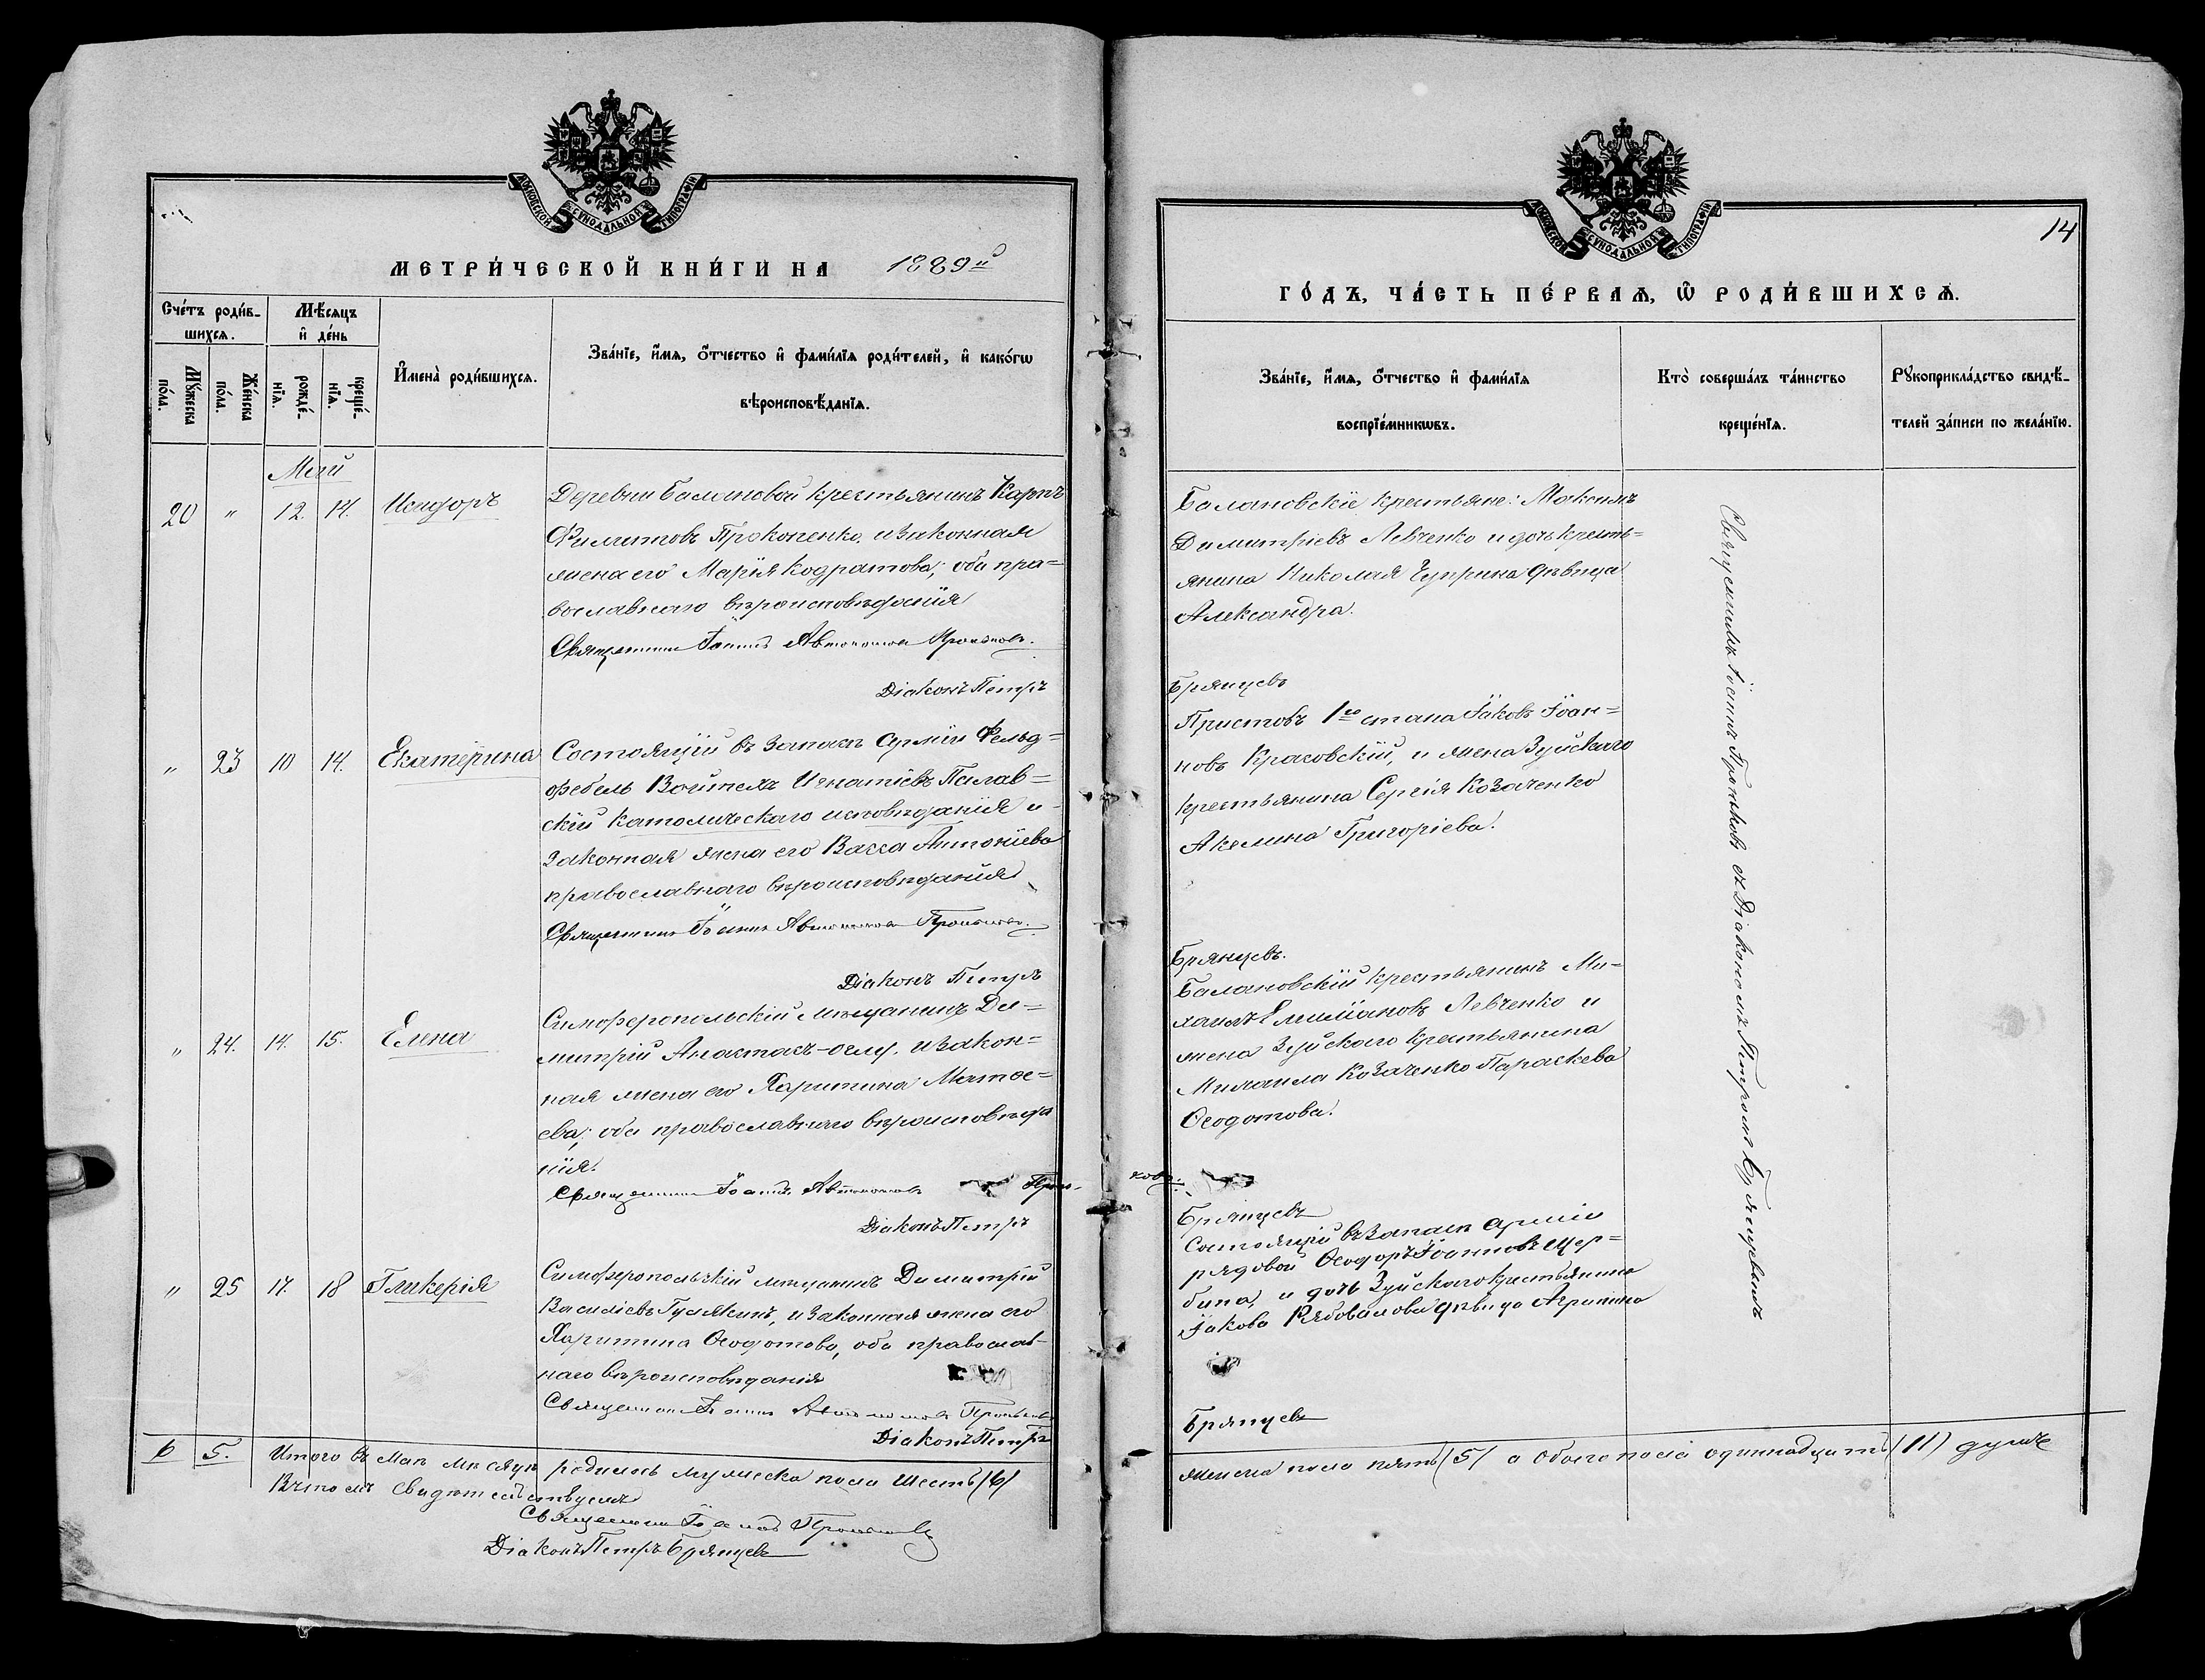 МОСКОВСКОЙ СУНОДАЛЬНОЙ ТИПОГРАФІИ
МЕТРИ́ЧЕСКОЙ КНИ́ГИ НА 1889й
Сче́тъ роди́в-
шихсѧ.
Мѣ́сѧцъ
и҆ де́нь
Мꙋ́жеска
по́ла.
Же́нска
по́ла.
рожде́-
нїѧ.
креще́-
нїѧ.
И҆мена̀ роди́вшихсѧ.
Зва́нїе, и҆́мѧ, ѻ҆́тчество и҆ фами́лїѧ роди́телей, и҆ како́гѡ
вѣроисповѣ́данїѧ.
Май
20 " 12. 14. Исидоръ
Деревни Балановой крестьянинъ Карпъ
Филиповъ Прокопенко, и законная
жена его Марія Кодратова; оба пра=
вославнаго вѣроисповѣданія
Священникъ Іоаннъ Автономовъ Прони́ковъ.
Діаконъ Петръ
" 23 10 14. Екатерина
Состоящій въ запасѣ арміи Фельд=
фебель Войтехъ Игнатіевъ Палав=
скій католическаго исповѣданія и
законная жена его Васса Антоніева
православнаго вѣроисповѣданія
Священникъ Іоаннъ Автономовъ
Діаконъ Петръ
" 24. 14. 15. Елена
Симферопольскій мѣщанинъ Ди=
митрій Анастасъ-оглу, и закон=
ная жена его Харитина Матѳе=
ева; оба православнаго вѣроисповѣда
нія.
Священникъ Іоаннъ Автономовъ
Діаконъ Петръ
" 25 17. 18 Гликерія
Симферопольскій мѣщанинъ Димитрій
Василіевъ Гужякинъ, и законная жена его
Харитина Ѳеодотова, оба православ-
наго вѣроисповѣданія
Священникъ Іоаннъ Автономовъ
Діаконъ Петръ
6 5. Итого въ Маѣ мѣсяцѣ родилось мужеска пола шесть (6)
Въ томъ свидѣтельствуемъ
Священникъ Іоаннъ
Діаконъ Петръ Брянцевъ
МОСКОВСКОЙ СУНОДАЛЬНОЙ ТИПОГРАФІИ
14
ГО́ДЪ, ЧА́СТЬ ПЕ́РВАѦ, Ѡ҆ РОДИ́ВШИХСѦ.
Зва́нїе, и҆́мѧ, ѻ҆́тчество и҆ фами́лїѧ
воспрїе́мникѡвъ.
Кто̀ соверша́лъ та́инство
креще́нїѧ.
Рꙋкоприкла́дство свидѣ́-
телей за́писи по жела́нїю.
Балановскіе крестьяне: Максимъ
Димитріевъ Левченко и дочь кресть=
янина Николая Чуприна дѣвица
Александра.
Брянцевъ
Приставъ 1го стана Іаковъ Іоан=
новъ Красовскій, и жена Зуйскаго
крестьянина Сергія Козаченко
Акилина Григоріева.
Брянцевъ.
Балановскій крестьянинъ Ми=
хаилъ Емиліановъ Левченко и
жена Зуйскаго крестьянина
Михаила Козаченко Параскева
Ѳеодотова.
Брянцевъ
Состоящій въ запасѣ арміи
рядовой Ѳеодоръ Іоанновъ Щер=
бина, и дочь Зуйскаго крестьянина
Іакова Рябовалова дѣвица Агрипина
Брянцевъ
Священникъ Іоаннъ съ Діакономъ Петромъ Брянцевымъ
женска пола пять (5) а обоего пола одиннадцать (11) душъ